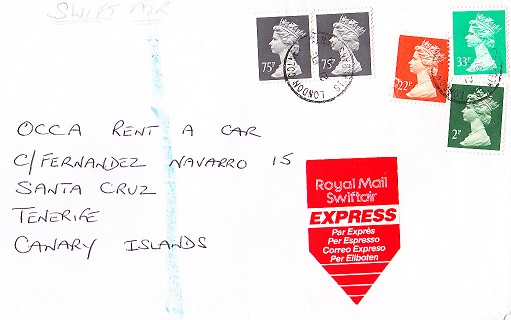 SWIFT AIR
75P
75P
22P
33P
2P
LONDON
OCCA RENT A CAR
C/FERNANDEZ NAVARRO 15
SANTA CRUZ
TENERIFE
CANARY ISLANDS
Royal Mail
Swiftair
EXPRESS
Par Exprès
Per Espresso
Correo Expreso
Per Eilboten